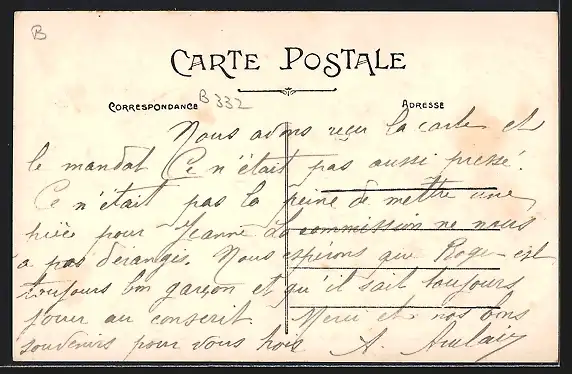 B
CARTE POSTALE
CORRESPONDANCE
B 332
ADRESSE
Nous avons reçu la carte et
le mandat Ce n'était pas aussi pressé.
Ce n'était pas la peine de mettre une
pièce pour Jeanne La commission ne nous
a pas dérangés. Nous espérons que Roger est
toujours bon garçon et qu'il sait toujours
jouer au conscrit. Merci et nos bons
souvenirs pour vous trois A.